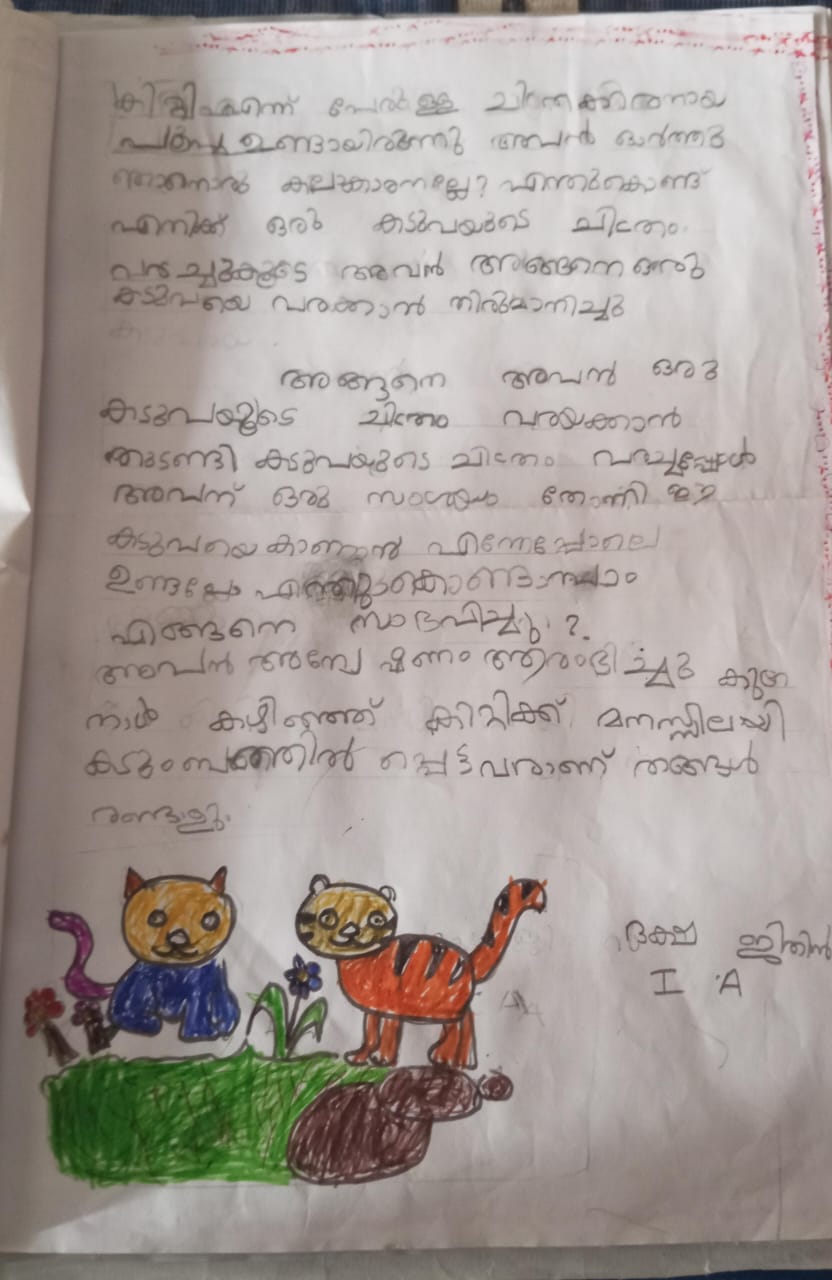 പേരുള്ള ചിത്രക്കാരനായ
പൂച്ച ഉണ്ടായിരുന്നു അവൻ ഓർത്തു
ഞാനൊരു കലാകാരനല്ലേ? എന്തുകൊണ്ട്
എനിക്ക് ഒരു കടുവയുടെ ചിത്രം
വരച്ചുകൂടെ അവൻ അങ്ങനെ ഒരു
കടുവയെ വരക്കാൻ തിരുമാനിച്ചു
അങ്ങനെ അവൻ ഒരു
കടുവയുടെ ചിത്രം വരയക്കാൻ
തുടങ്ങി കടുവയുടെ ചിത്രം വരച്ചപ്പോൾ
അവന് ഒരു സംശയം തോന്നി ഈ
കടുവയെ കാണാൻ എന്നെപ്പോലെ
ഉണ്ടല്ലോ
എങ്ങനെ സംഭവിച്ചു.?.
അവൻ അന്വേഷണം ആരംഭിച്ചു കുറേ
നാൾ കഴിഞ്ഞ് കിറ്റിക്ക് മനസ്സിലായി
കടുംബത്തിൽ പ്പെട്ടവരാണ് തങ്ങൾ
രണ്ടാളും.
ദക്ഷ ജിതിൻ
I A